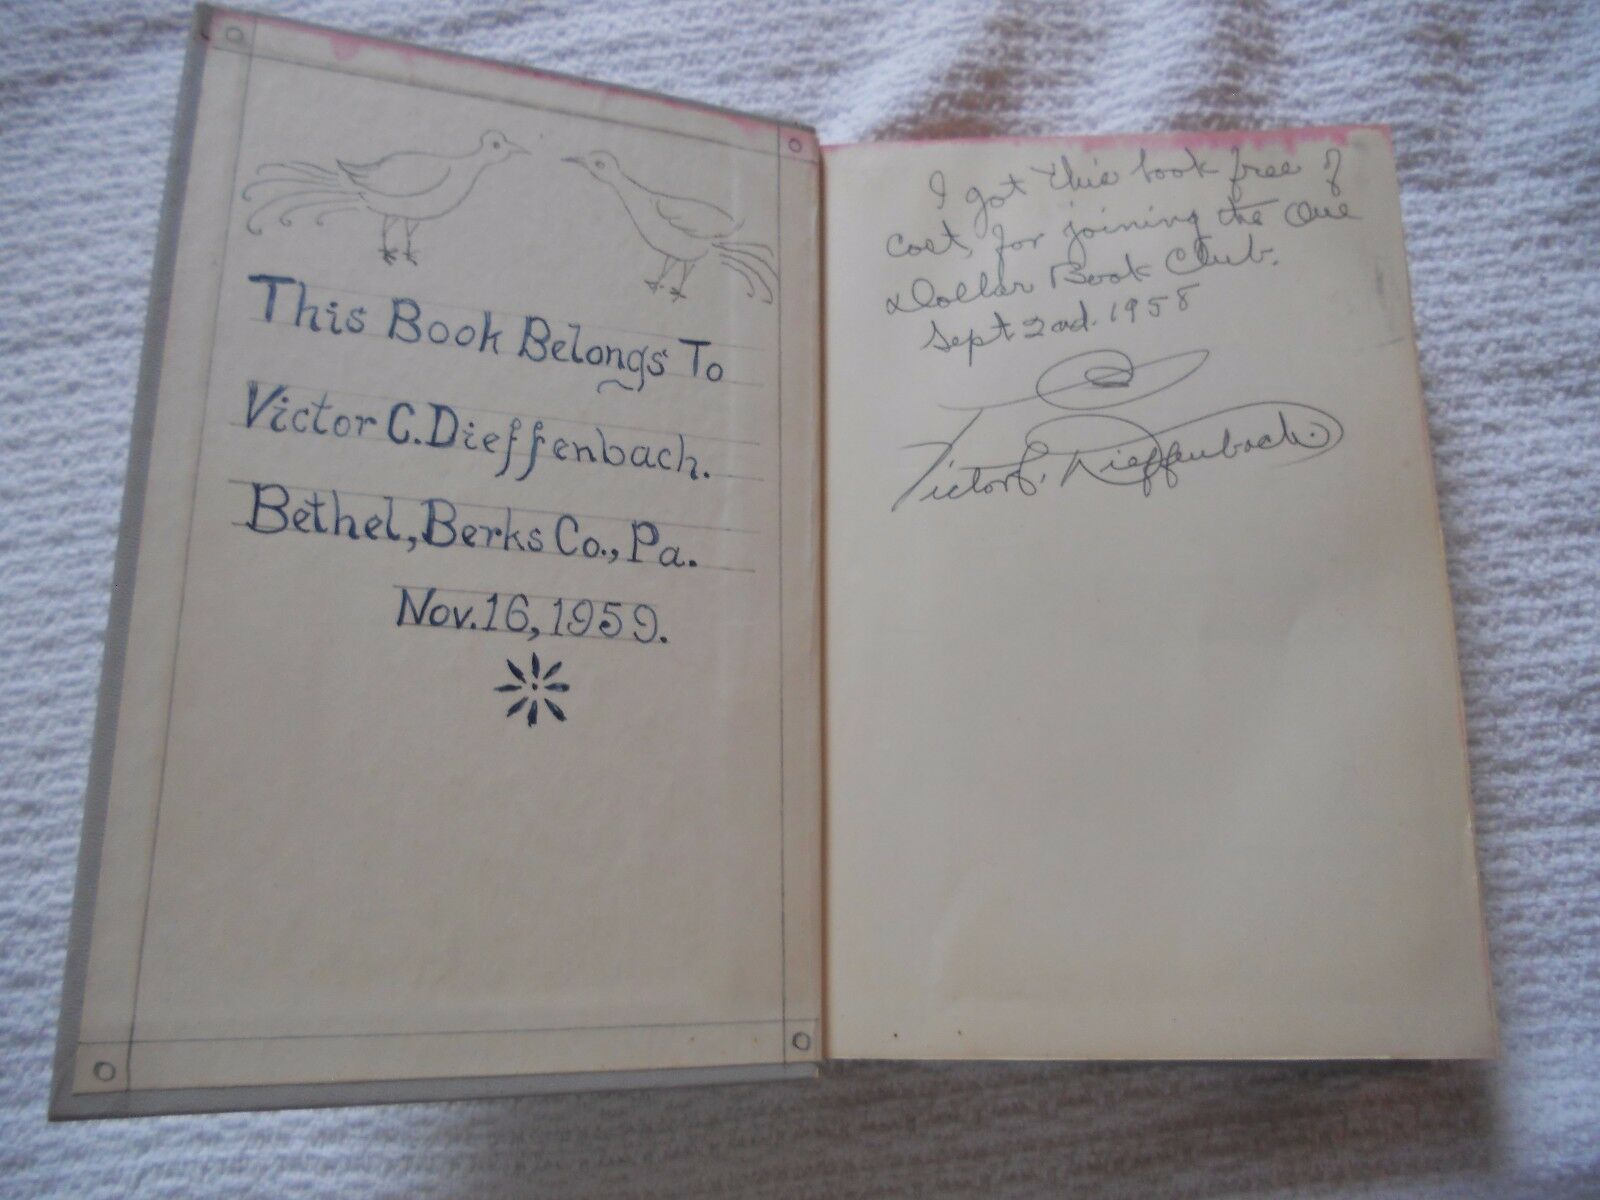 This Book Belongs To
Victor C. Dieffenbach.
Bethel, Berks Co., Pa.
Nov. 16, 1959.
I got this book free of
cost, for joining the One
Dollar Book Club.
Sept 2nd. 1958
Victor C. Dieffenbach.